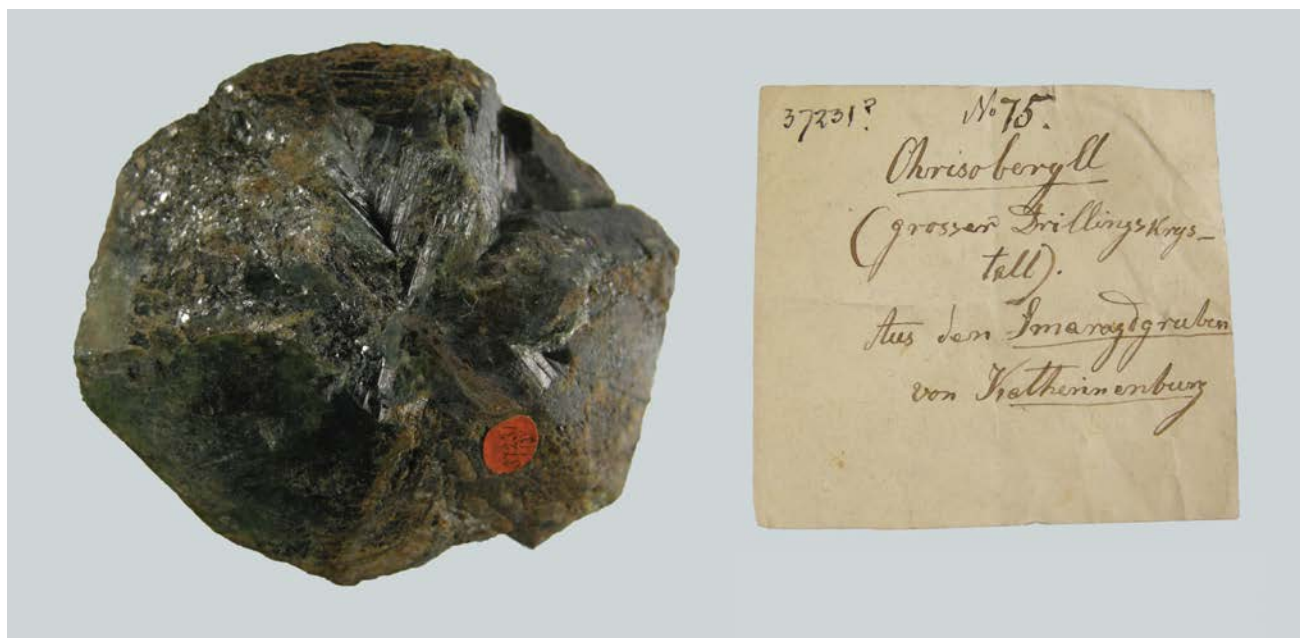 37231? No 75.
Chrisoberyll
(grosser Drillingskrys-
tall).
Aus den Smaragdgruben
von Katherinenburg